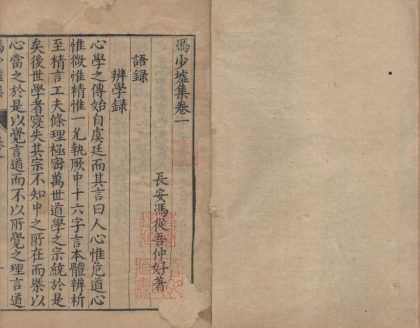 馮少墟集卷一
長安馮從吾仲好著
語錄
辨學錄
心學之傳始自虞廷而其言曰人心惟危道心
惟微惟精惟一允執厥中十六字言本體辨析
至精言工夫條理極密萬世道學之宗統於是
矣後世學者寖失其宗不知中之所在而槩以
心當之於是以覺言道而不以所覺之理言道